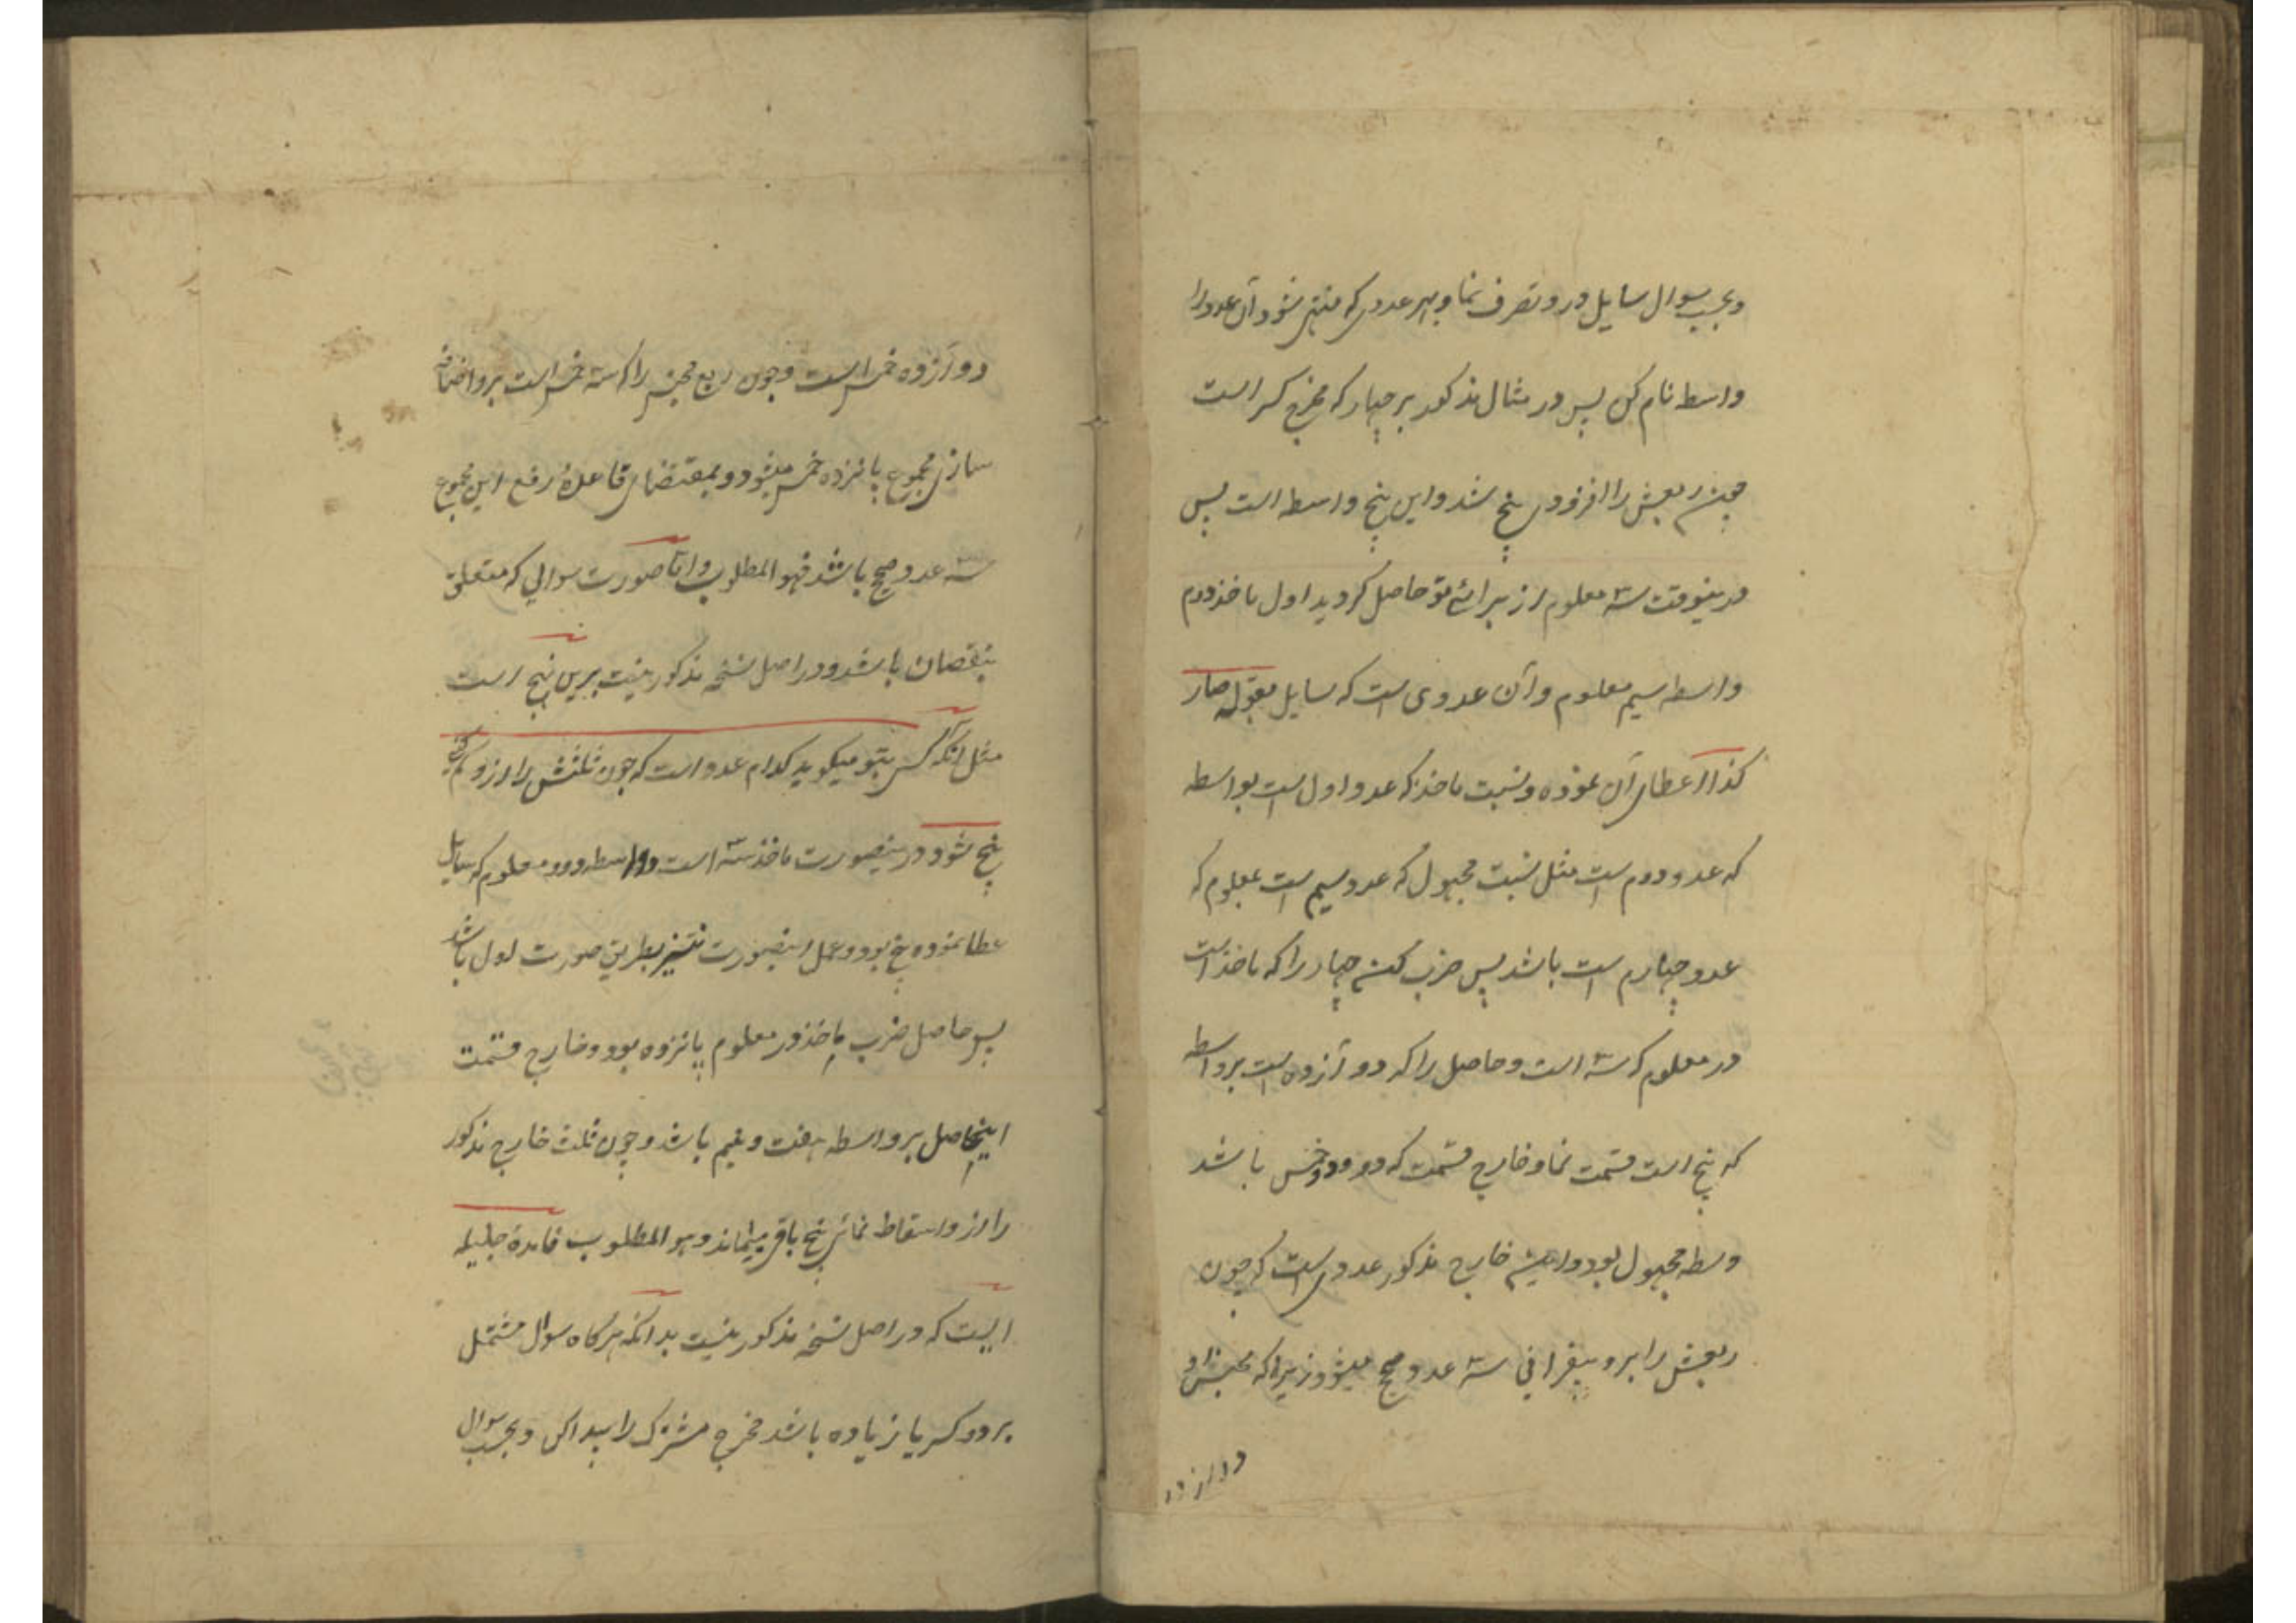 وبحسب سوال سایل درو تصرف نما و بهر عددی که منتهی شود آن عدد را
واسطه نام کن پس در مثال مذکور بر چهار که مخرج کسر است
چون ربعش را افزودی پنج شد و این پنج واسطه است پس
درینوقت سه معلوم از برائے تو حاصل گردید اول ماخذ دوم
واسطه سیم معلوم و آن عددی است که سایل بقوله صار
کذا اعطای آن نموده و نسبت ماخذ که عدد اول است بواسطه
که عدد دوم است مثل نسبت مجهول که عدد سیم است بمعلوم که
عدد چهارم است باشد پس ضرب کن چهار را که ماخذ است
در معلوم که سه است و حاصل را که دوازده است بر واسطه
که پنج است قسمت نما و خارج قسمت که دو و دو خمس باشد
وسطه مجهول بود و این خارج مذکور عددی است که چون
ربعش را برو بیفزائی سه عدد صحیح میشود زیرا که مجنس او
دوازده
دوازده خمس است و چون ربع مجنس را که سه خمس است برو اضافه
سازی مجموع پانزده خمس میشود و بمقتضای قاعدهٔ رفع این مجموع
سه عدد صحیح باشد فهو المطلوب و اما صورت سوالی که متعلق
بنقصان باشد و در اصل نسخه مذکور نیست برین نهج است
مثل انکه کسی بتو میکوید کدام عدد است که چون ثلثش را ازو کم کنی
پنج شود درینصورت ماخذ سه است و واسطه دو و معلوم که سایل
عطا نموده پنج بود و عمل اینصورت نیز بطریق صورت اول باشد
پس حاصل ضرب ماخذ در معلوم پانزده بود و خارج قسمت
اینحاصل بر واسطه هفت و نیم باشد و چون ثلث خارج مذکور
را ازو اسقاط نمائی پنج باقی میماند و هو المطلوب فایدهٔ جلیله
ایست که در اصل نسخه مذکور نیست بدانکه هرکاه سوال مشتمل
بر دو کسر یا زیاده باشد مخرج مشترک را پیدا کن و بحسب سوال